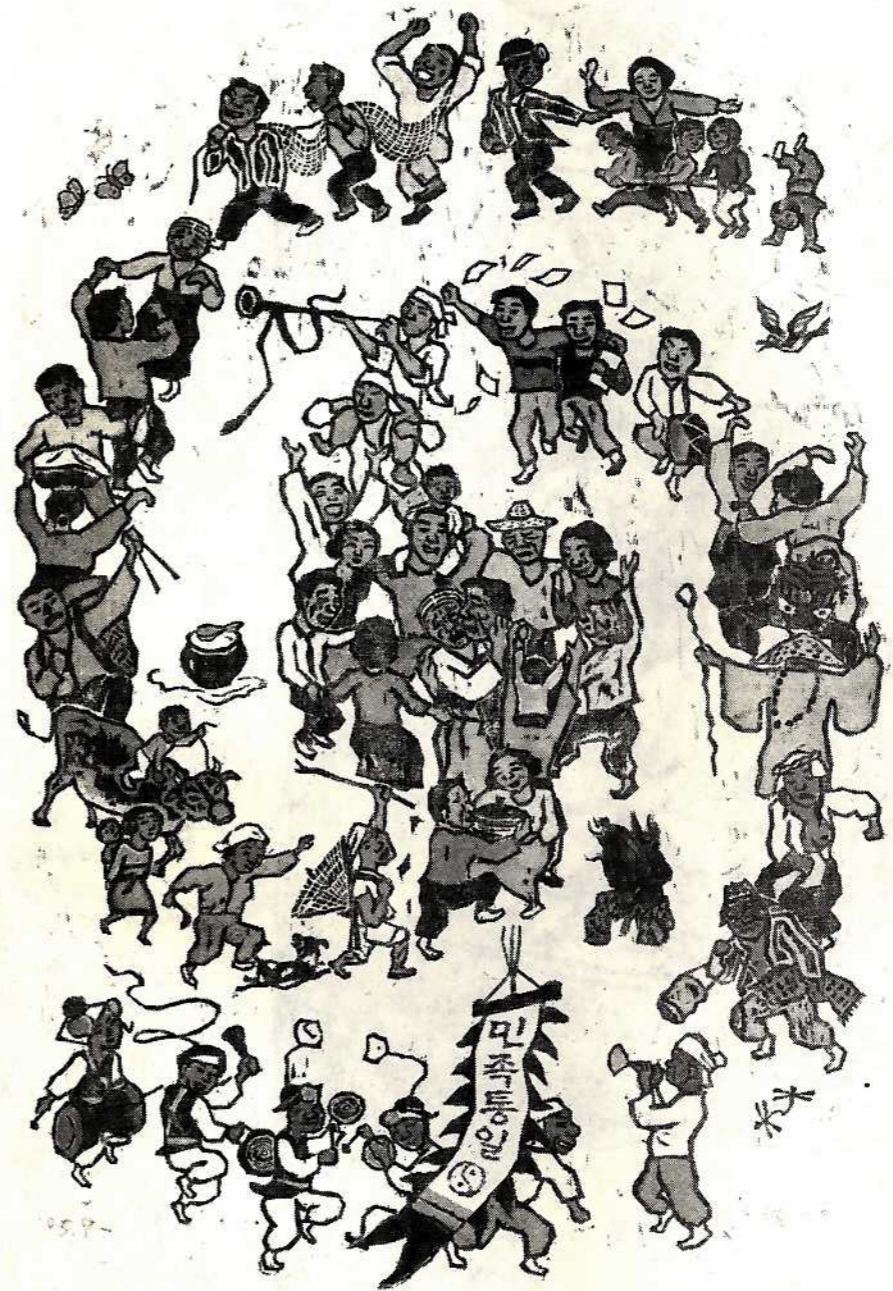 민족통일